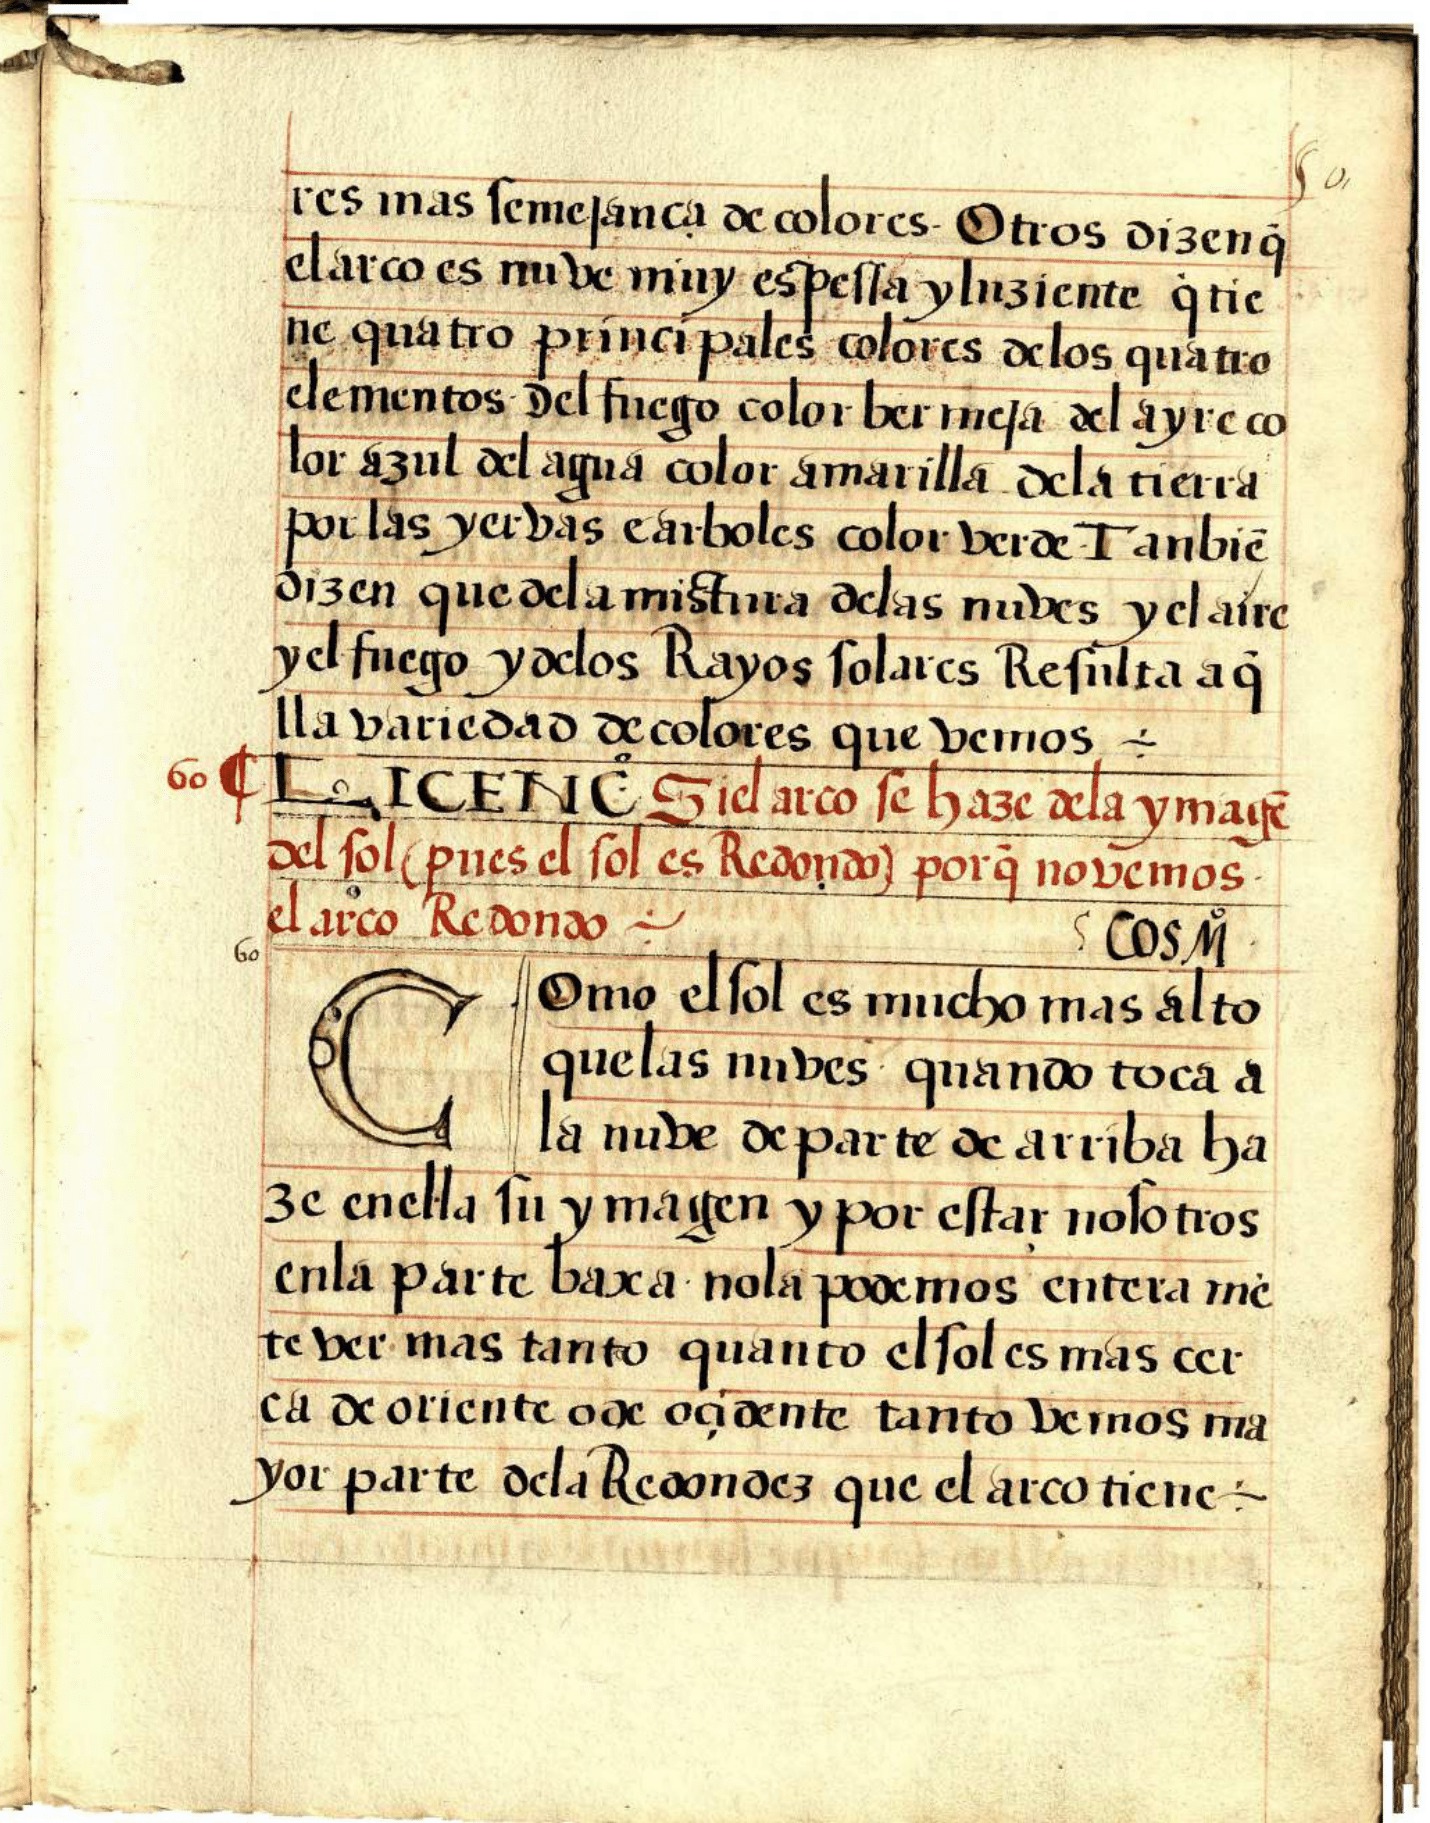 50.
res mas semejança de colores. Otros dizen q̃
el arco es nuve muy espessa y luziente q̃ tie
ne quatro principales colores de los quatro
elementos. Del fuego color bermeja del ayre co
lor azul del agua color amarilla de la tierra
por las yervas e arboles color verde. Tanbiẽ
dizen que de la mistura de las nuves y el aire
y el fuego y de los Rayos solares Resulta aq̃
lla variedad de colores que vemos ÷
60 ¶ LICENCº Si el arco se haze de la ymagẽ
del sol (pues el sol es Redondo) porq̃ no vemos
el arco Redondo ÷
COSMº
60
Como el sol es mucho mas alto
que las nuves. quando toca a
la nuve de parte de arriba ha
ze en ella su ymagen y por estar nosotros
en la parte baxa. no la podemos entera mẽ
te ver mas tanto quanto el sol es mas cer
ca de oriente o de oçidente tanto vemos ma
yor parte de la Redondez que el arco tiene ÷